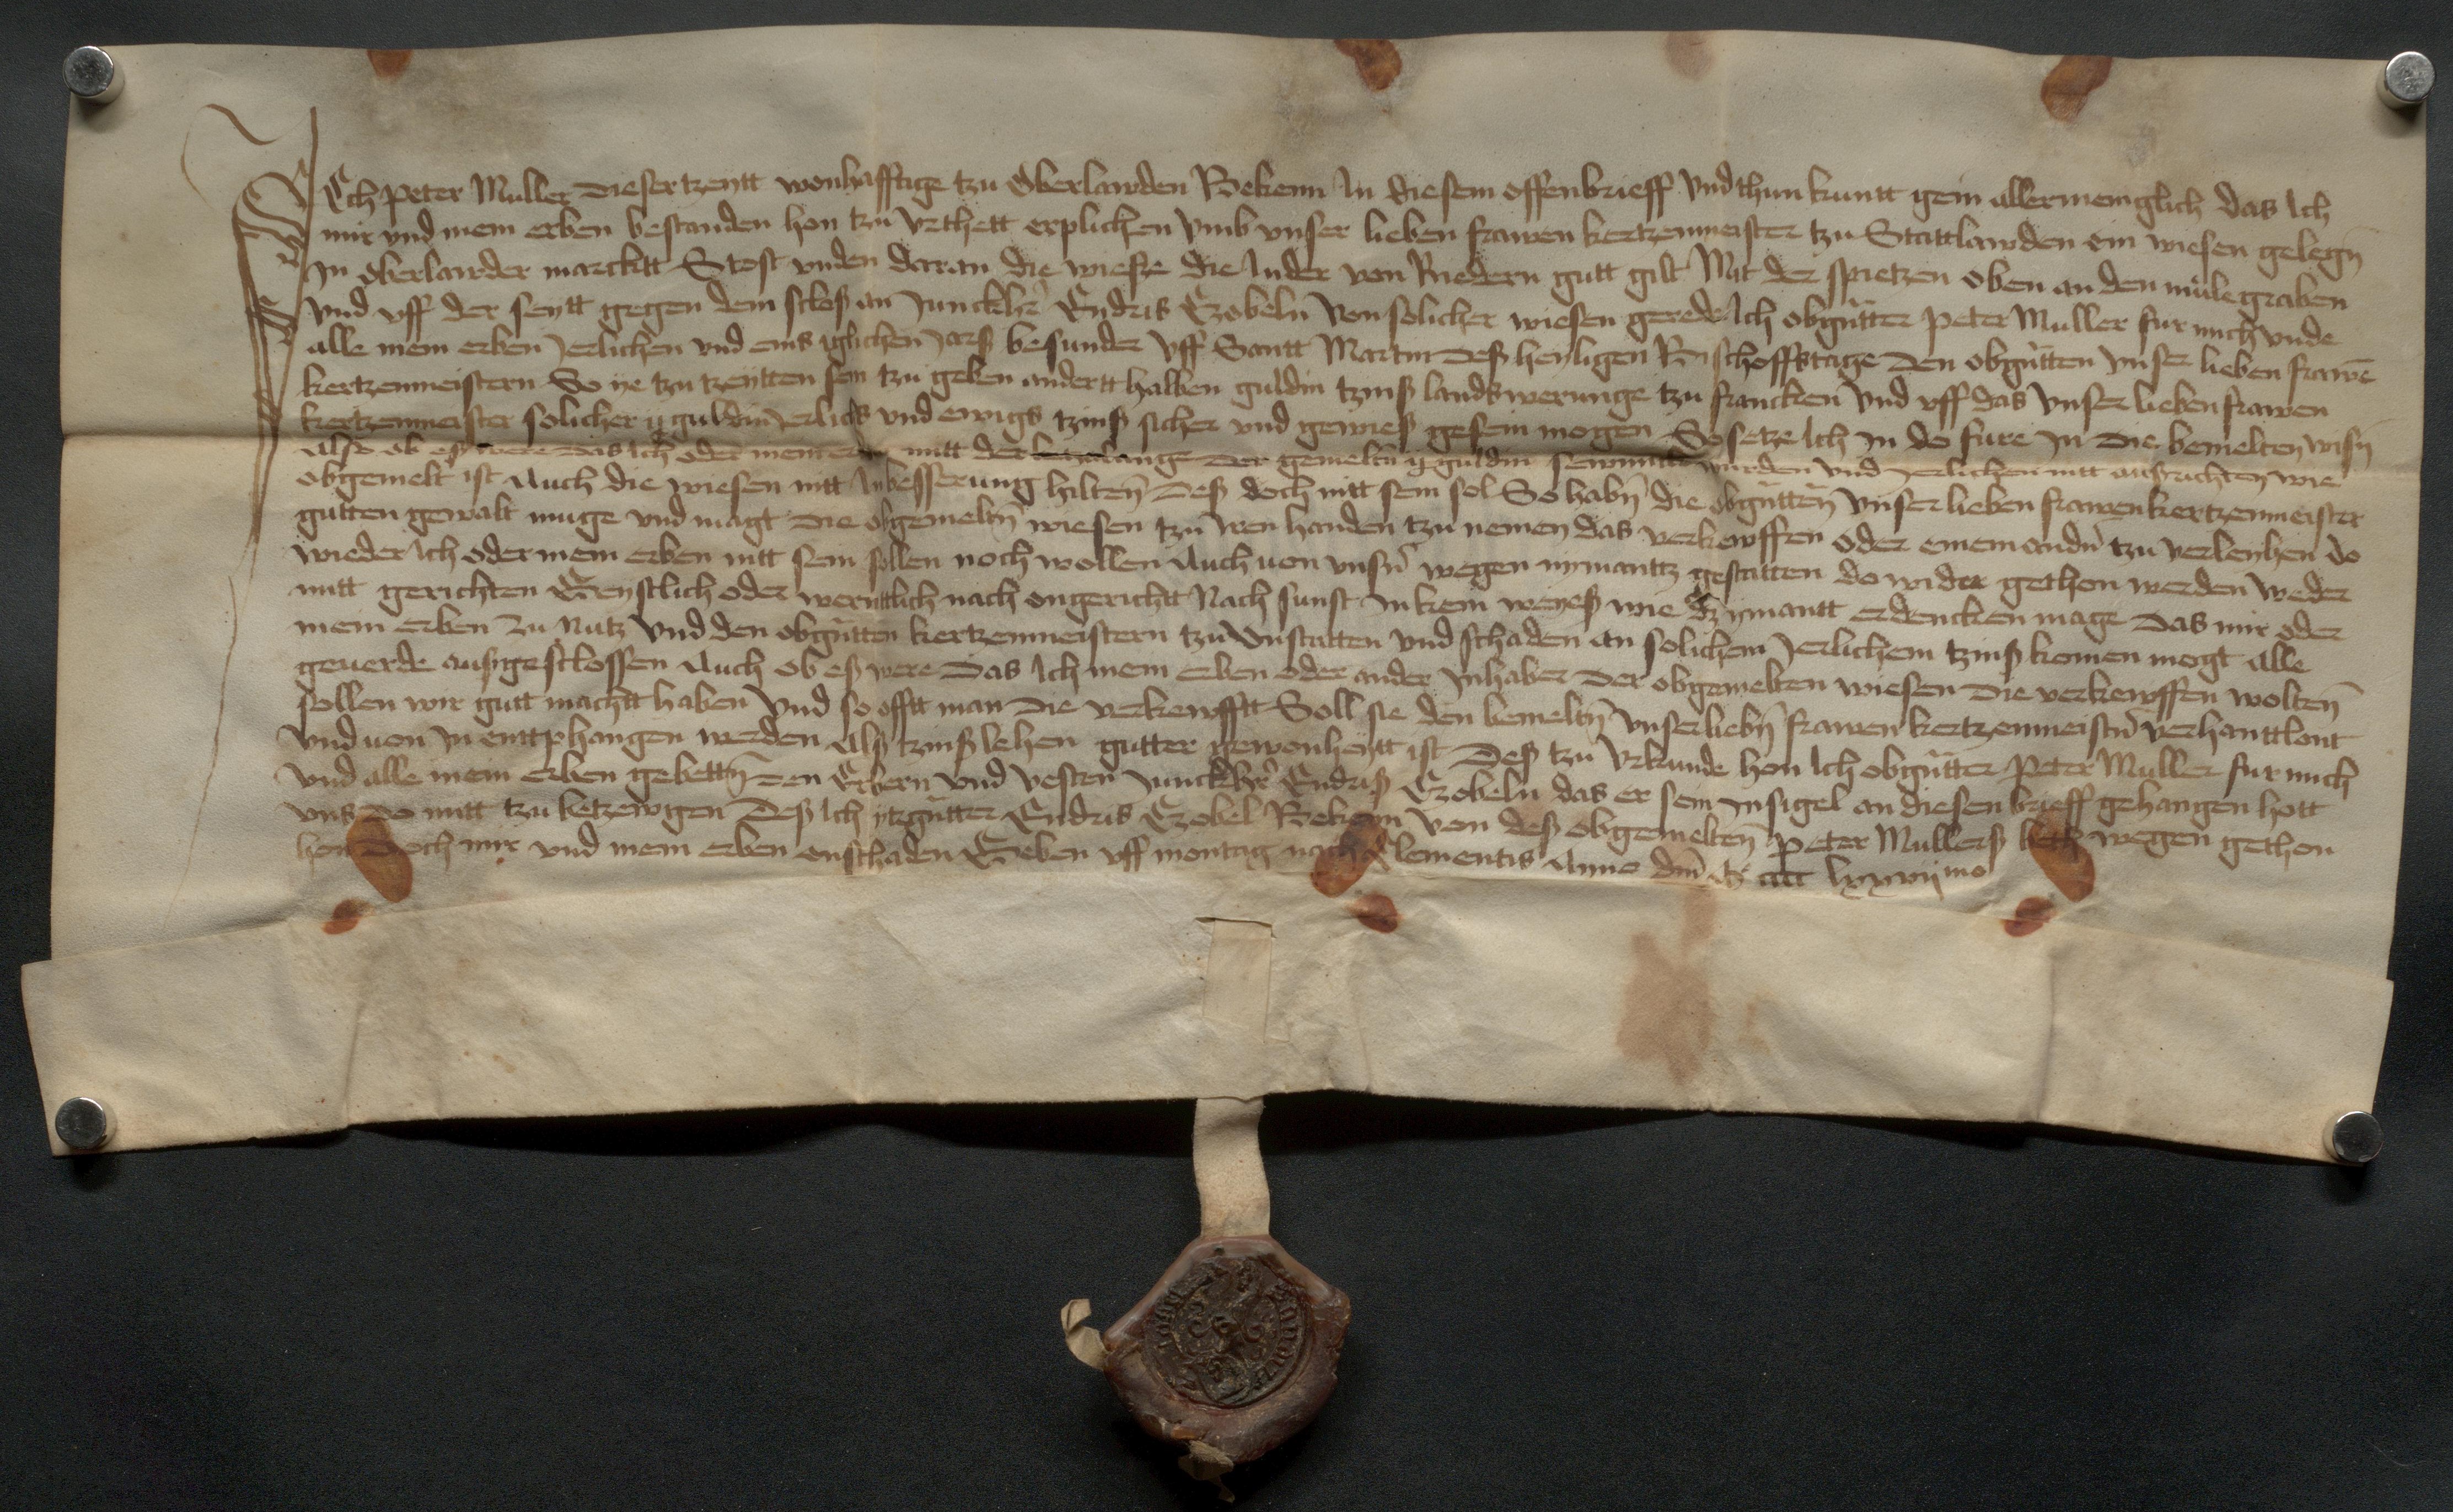 Ich Peter Muller dieser tzeytt wonhafftige tzu Oberlawden Bekenn In diesem offenbrieff Vnd thun kuntt gein allermeniglich das Ich
mir vnd mein erben bestanden hon tzu vrthett erplichen Vmb vnser lieben frawen kertzenmeister tzu Stattlawden ein wiesen gelegñ
In Oberlawder marcktt Stost vnden daran die wiese die In der von Riedern gutt gilt Mit der spietzen oben an den mule graben
vnd vff der seytt gegen dem sclos an Junckhr̄ Endris Czobeln Von solicher wiesen gerede Ich obgñtter Peter Muller fur mich vnde
alle mein erben Jerlichen vnd eins iglichen Jars besunder Vff Santt Martin deß heyligen Bischoffstage den obgñtten vnser lieben frawē
kertzenmeistern So ye tzu tzeytten sein tzu geben andertt halben guldin tzinß landswerunge tzu francken vnd vff das vnser lieben frawen
kertzenmeister solicher ij guldin Jerlichs vnd ewigs tzinß sicher vnd gewieß gesein mogen So setze Ich In do fure In die bemelten wisñ
Also ob eß were das Ich oder mein mitt der gemeltñ ij guldin sewmitt wurden vnd Jerlichen nitt ausrichten wie
obgemelt ist Auch die wiesen nitt In besserung hilten deß doch nitt sein sol So habñ die obgñtten vnser lieben frawen kertzenmeister
gutten gewalt muge vnd magt die obgemeltñ wiesen tzu Iren handen tzu nemen das verkewffen oder einem andñ tzu verleyhen do
wieder Ich oder mein erben nitt sein sollen noch wollen Auch von vnsñ wegen nymanttz gestatten do wider gethon werden weder
mitt gerichten Geystlich oder werntlich nach ongericht Nach sunst In kein weyeß wie Eß ymantt erdencken mage das mir oder
mein erben Zu Nutz vnd den obgñtten kertzenmeistern tzu Vnstatten vnd schaden an solichem Jerlichem tzinß komen mogt alle
geuerde aussgeslossen Auch ob eß were das Ich mein erben oder ander Inhaber der obgemelten wiesen die verkewffen wolten
sollen wir gutt machtt haben Vnd so offt man die verkewfftt Soll sie den bemeltñ vnser liebñ frawen kertzenmeistñ verhanttlont
vnd von In enttphangen werden Alß tzinß lehen gutter gewonheytt ist Deß tzu Vrkunde hon Ich obgñtter Peter Muller fur mich
vnd alle mein erben gebettñ den Erbern vnd vesten Junckhr̄ Endriß Czobeln das er sein Insigel an diesen brieff gehangen hott
vns do mitt tzu betzewgen deß Ich itzgñtter Endris Czobel Bekenn von deß obgemelten Peter Mullerß beth wegen gethon
hon doch mir vnd mein erben onschaden Geben vff montag nach Clementis Anno dm̄ lxxxvijmo